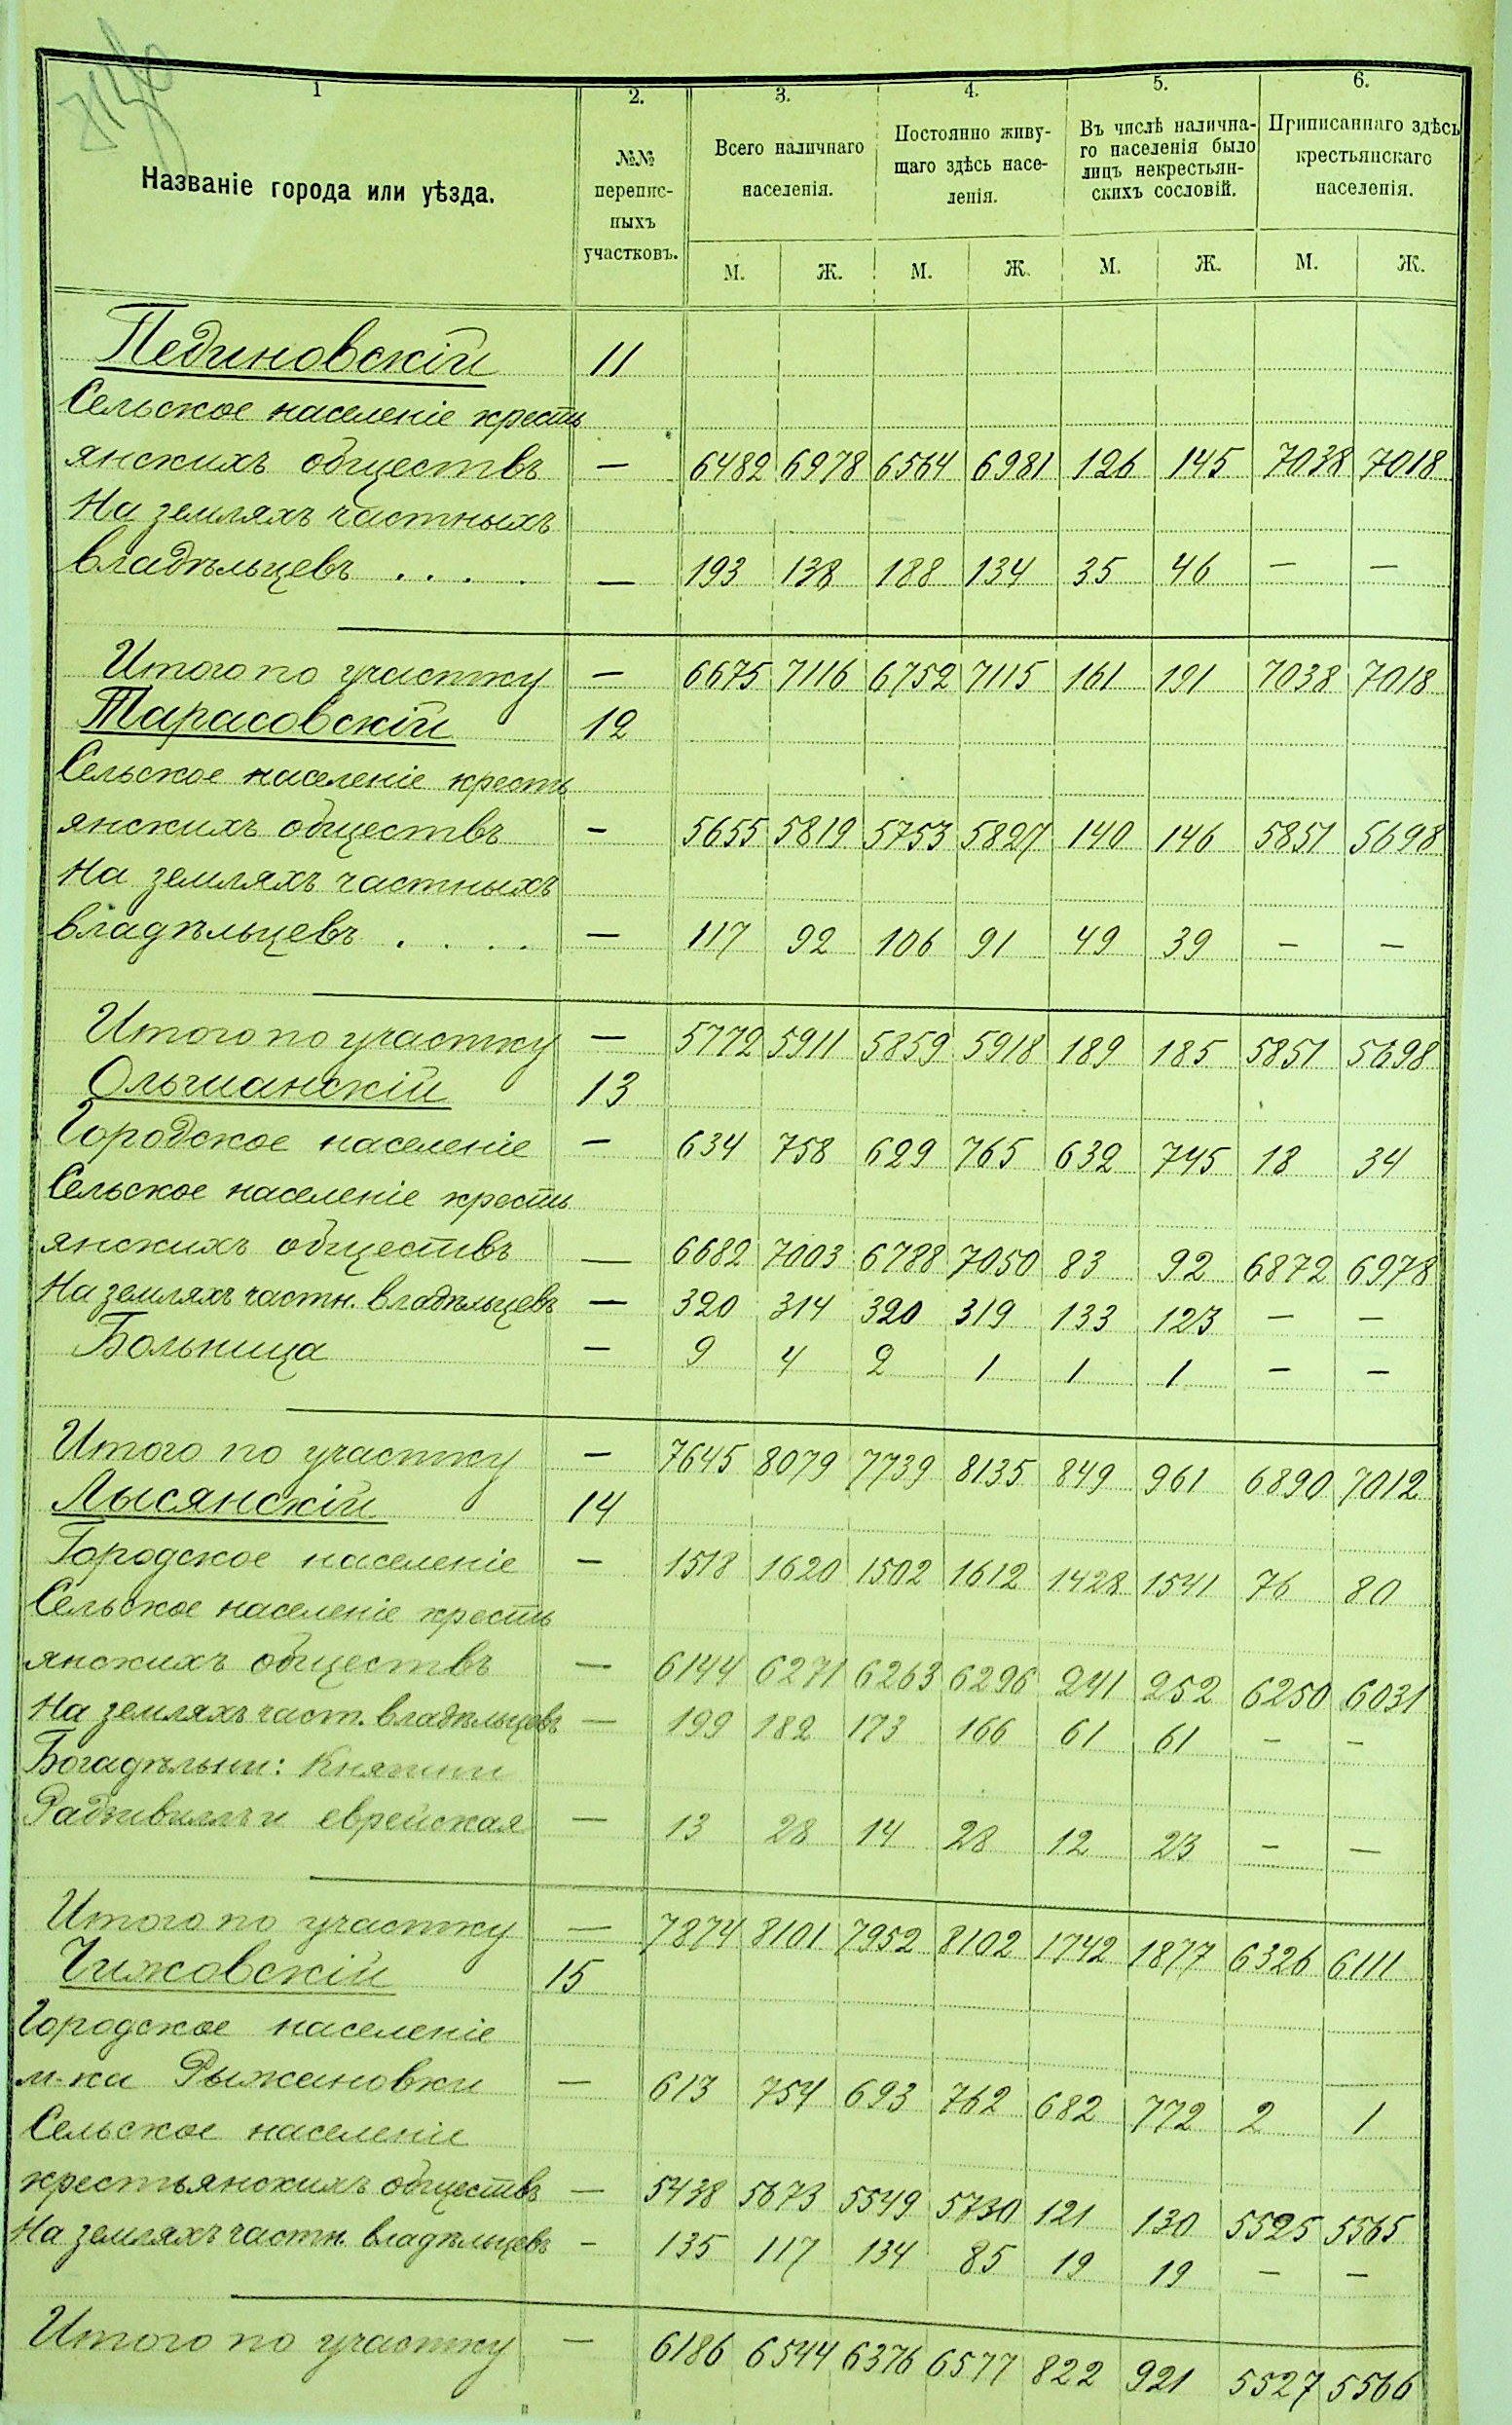 1 2. 3. 4. 5. 6.
Названіе города или уѣзда. №№ перепис-ныхъ участковъ. Всего наличнаго населенія. Постоянно живу-щаго здѣсь насе-ленія. Въ числѣ налична-го населенія было лицъ некрестьян-скихъ сословій. Приписаннаго здѣсь крестьянскаго населенія.
М. Ж. М. Ж. М. Ж. М. Ж.
Пединовскій 11
Сельское населеніе кресть
янскихъ обществъ — 6482 6978 6564 6981 126 145 7038 7018
На земляхъ частныхъ
владѣльцевъ . . . . — 193 138 188 134 35 46 — —
Итого по участку — 6675 7116 6752 7115 161 191 7038 7018
Тарасовскій 12
Сельское населеніе кресть
янскихъ обществъ — 5655 5819 5753 5827 140 146 5851 5698
На земляхъ частныхъ
владѣльцевъ . . . . — 117 92 106 91 49 39 — —
Итого по участку — 5772 5911 5859 5918 189 185 5851 5698
Ольшанскій 13
Городское населеніе — 634 758 629 765 632 745 18 34
Сельское населеніе кресть
янскихъ обществъ — 6682 7003 6788 7050 83 92 6872 6978
На земляхъ частн. владѣльцевъ — 320 314 320 319 133 123 — —
Больница — 9 4 2 1 1 1 — —
Итого по участку — 7645 8079 7739 8135 849 961 6890 7012
Лысянскій 14
Городское населеніе — 1518 1620 1502 1612 1428 1541 76 80
Сельское населеніе кресть
янскихъ обществъ — 6144 6271 6263 6296 241 252 6250 6031
На земляхъ част. владѣльцевъ — 199 182 173 166 61 61 — —
Богадѣльни: Княгини
Радзивиллъ и еврейская — 13 28 14 28 12 23 — —
Итого по участку — 7874 8101 7952 8102 1742 1877 6326 6111
Чижовскій 15
Городское населеніе
м-ка Рыжановки — 613 754 693 762 682 772 2 1
Сельское населеніе
крестьянскихъ обществъ — 5438 5673 5549 5730 121 130 5525 5565
На земляхъ частн. владѣльцевъ — 135 117 134 85 19 19 — —
Итого по участку — 6186 6544 6376 6577 822 921 5527 5566